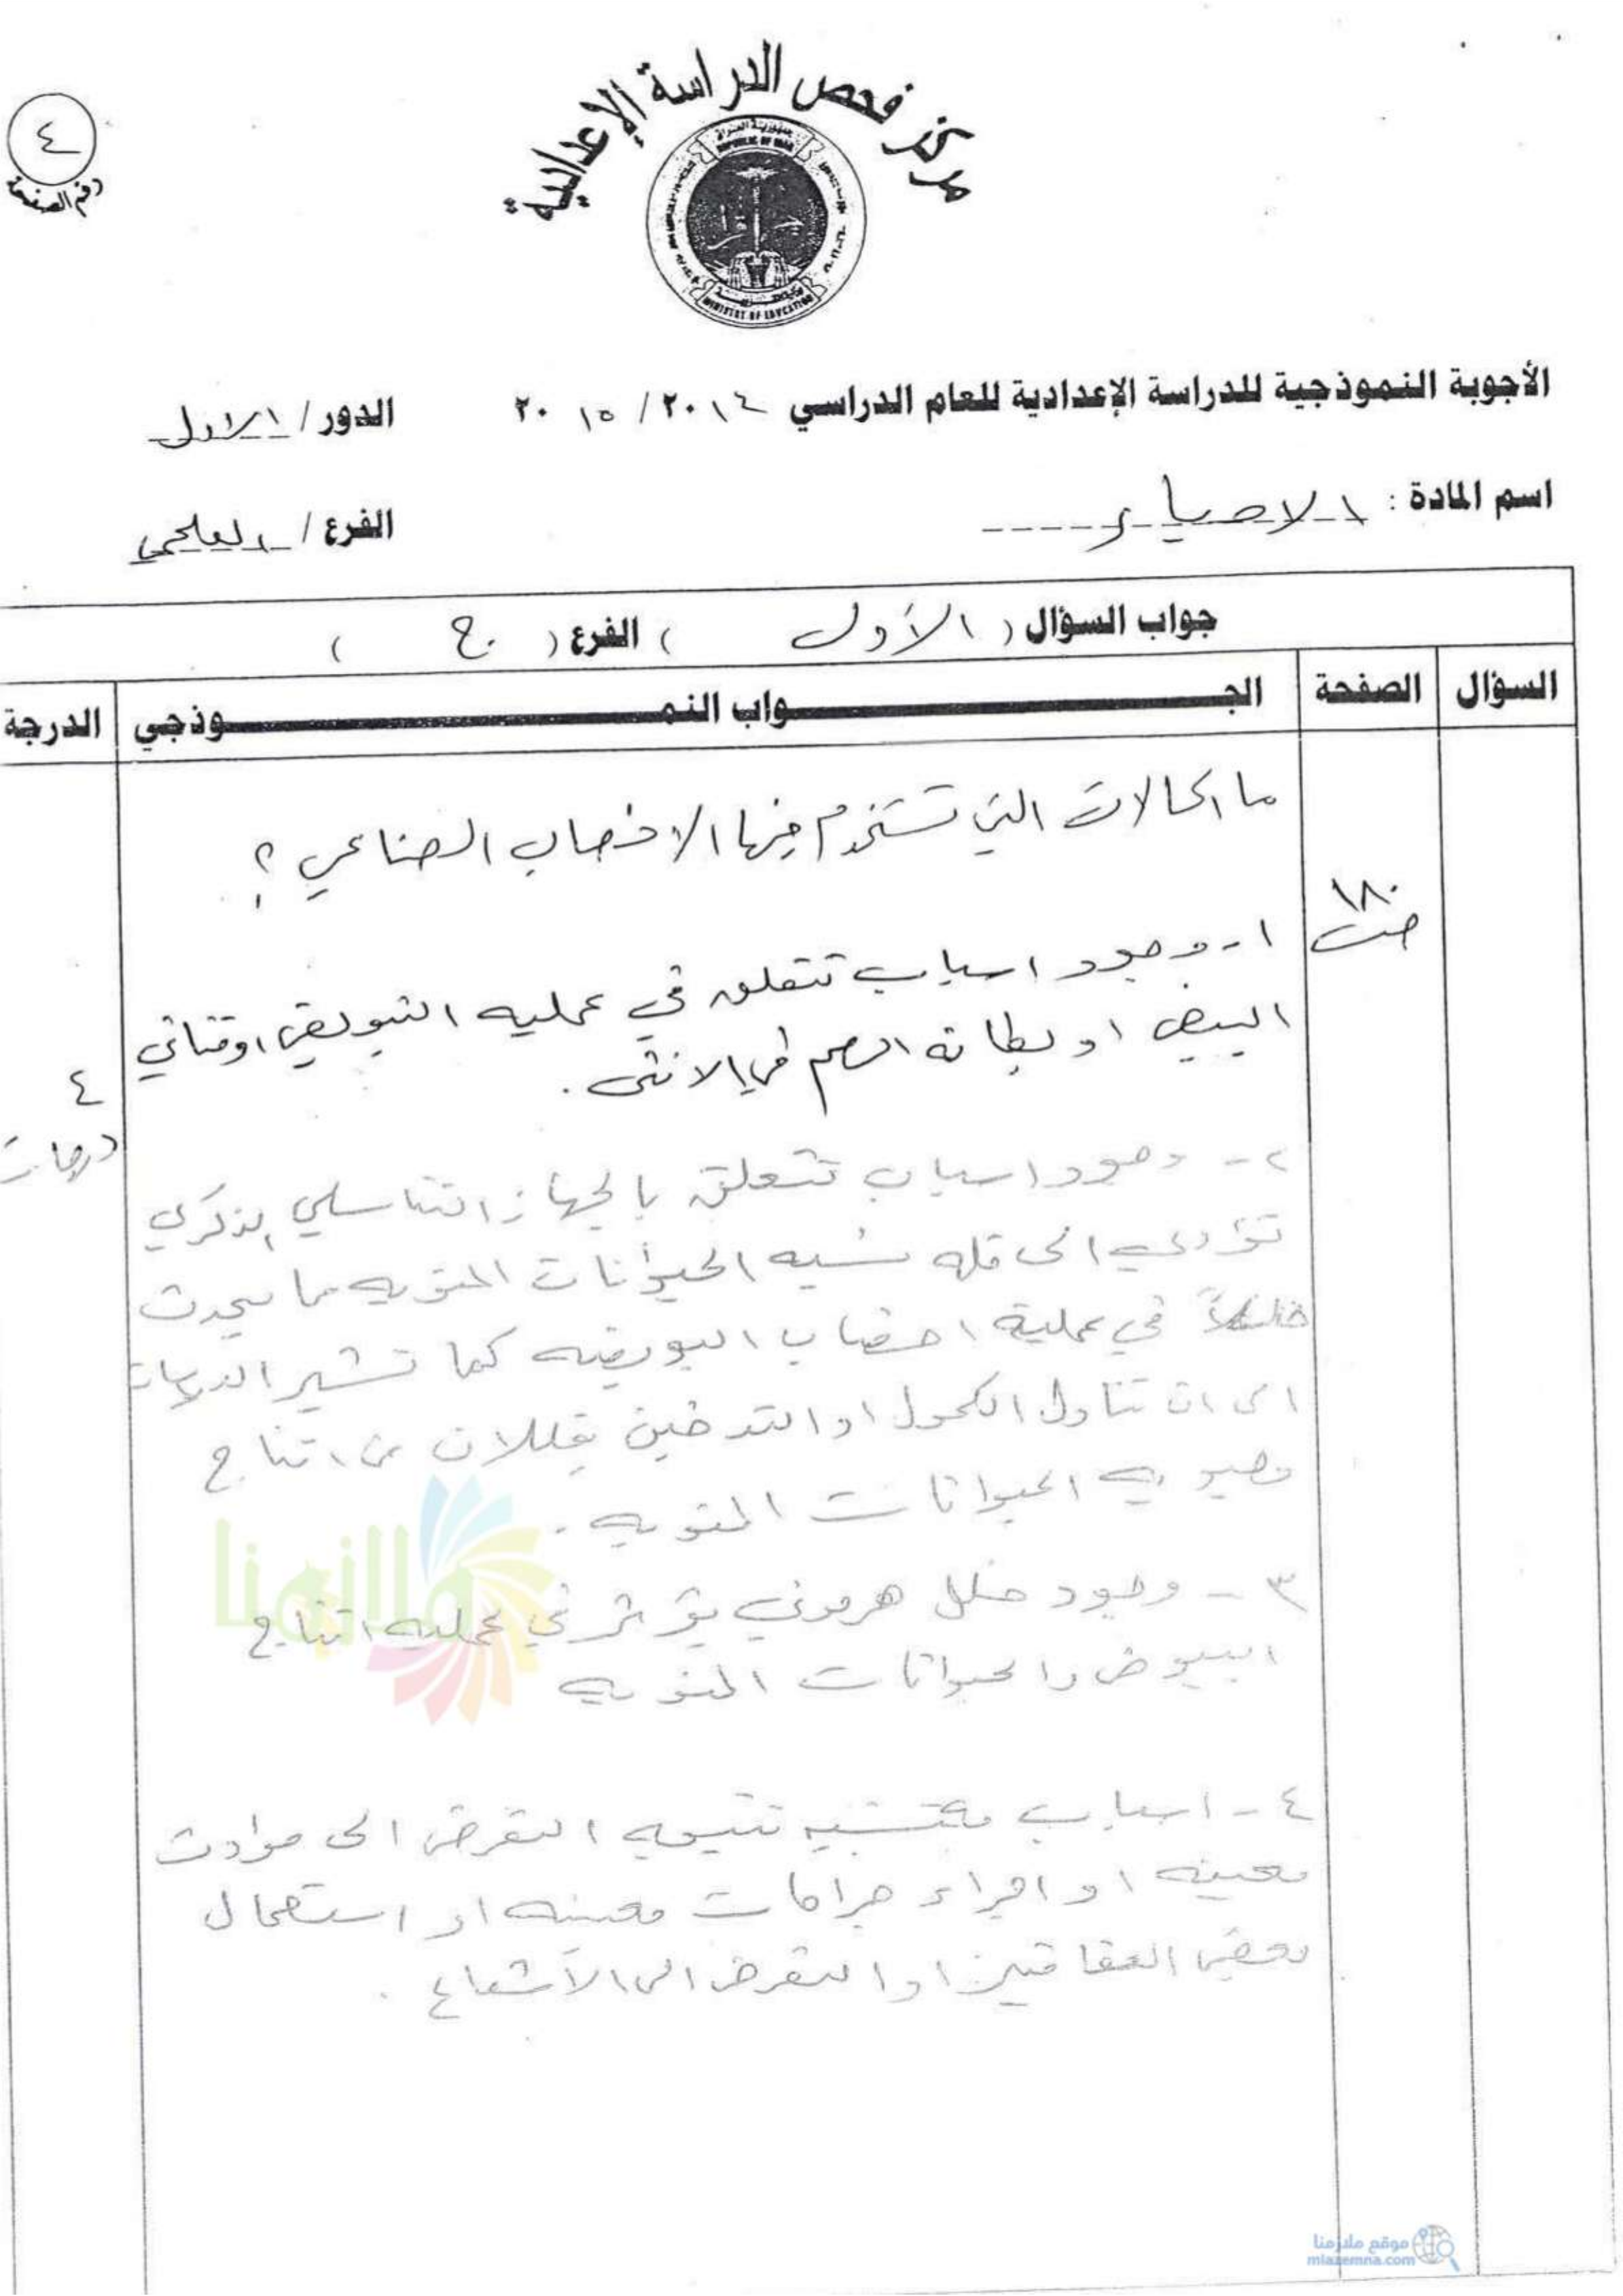 مركز فحص الدراسة الإعدادية
جمهورية العراق
REPUBLIC OF IRAQ
MINISTRY OF EDUCATION
٤
رقم الصفحة
الأجوبة النموذجية للدراسة الإعدادية للعام الدراسي ٢٠١٤ / ٢٠١٥ الدور / الاول
اسم المادة : الاحياء الفرع / العلمي
جواب السؤال ( الأول ) الفرع ( ج )
السؤال الصفحة الجـواب النمـوذجي الدرجة
ما الحالات التي تستخدم فيها الاخصاب الصناعي ؟
١٨٠
ص
١- وجود اسباب تتعلق في عمليه التبويض او قناتي
البيض او بطانه الرحم في الانثى .
٤
درجات
٢- وجود اسباب تتعلق بالجهاز التناسلي الذكري
تؤدي الى قله نسبه الحيوانات المنويه مما يحدث
خللاً في عملية اخصاب البويضه كما تشير الدراسات
الى ان تناول الكحول او التدخين يقللان من انتاج
وحيويه الحيوانات المنويه .
٣- وجود خلل هرموني يؤثر في عمليه انتاج
البيوض والحيوانات المنويه
٤- اسباب مكتسبه نتيجه التعرض الى حوادث
معينه او اجراء جراحات معينه او استعمال
بعض العقاقير او التعرض الى الأشعاع .
ملازمنا
موقع ملازمنا
mlazemna.com